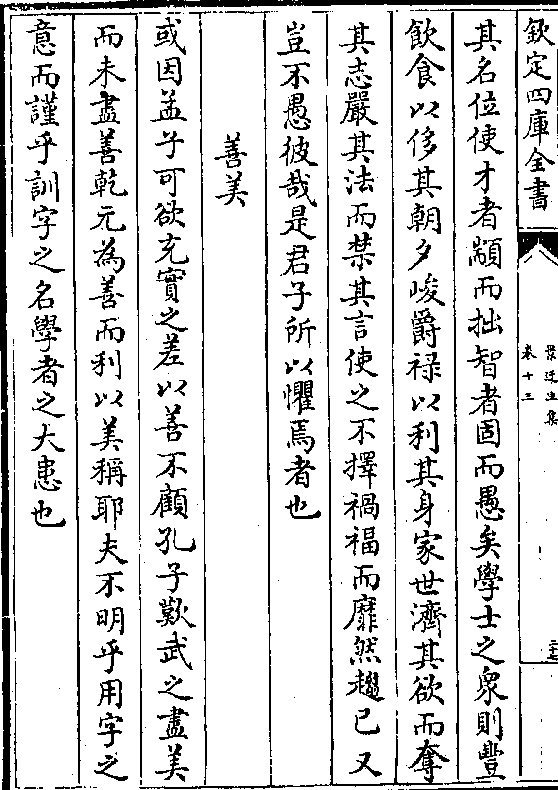 欽定四庫全書
景迂生集
卷十三
其名位使才者顓而拙智者固而愚矣學士之衆則豐
飲食以侈其朝夕峻爵禄以利其身家世濟其欲而奪
其志嚴其法而禁其言使之不擇禍福而靡然趨已又
豈不愚彼哉是君子所以懼焉者也
善美
或因孟子可欲充實之差以善不顧孔子歎武之盡美
而未盡善乾元為善而利以美稱耶夫不明乎用字之
意而謹乎訓字之名學者之大患也